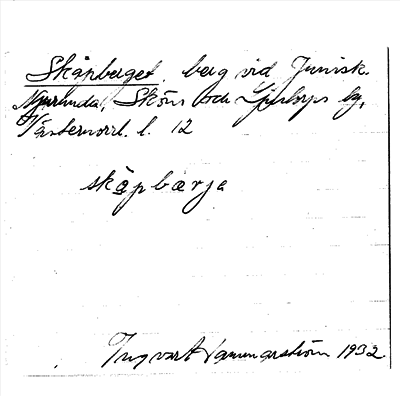 Skåpberget, berg vid Junisk.
Njurunda, Sköns och Ljustorps tg,
Västernorrl. l. 12
skåpbærje
Ingvart Hammarström 1932